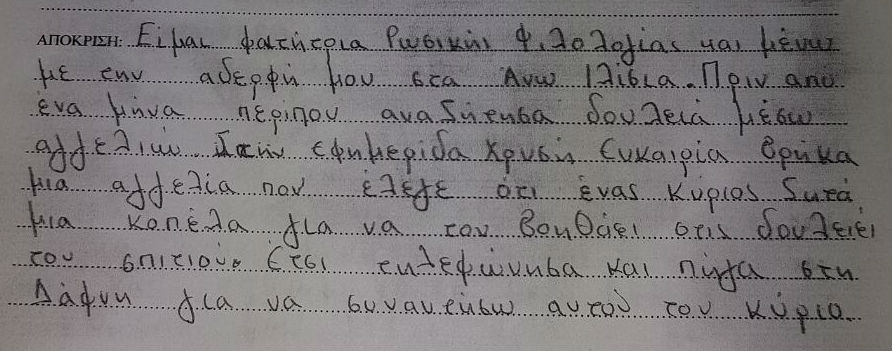 ΑΠΟΚΡΙΣΗ: Είμαι φοιτήτρια Ρωσικής Φιλολογίας και μένω
με την αδερφή μου στα Άνω Ιλίσια. Πριν από
ένα μήνα περίπου αναζήτησα δουλειά μέσω
αγγελιών. Στην εφημερίδα Χρυσή Ευκαιρία βρήκα
μια αγγελία που έλεγε ότι ένας κύριος ζητά
μια κοπέλα για να τον βοηθάει στις δουλειές
του σπιτιού. Έτσι τηλεφώνησα και πήγα στη
Δάφνη για να συναντήσω αυτού του κύριο